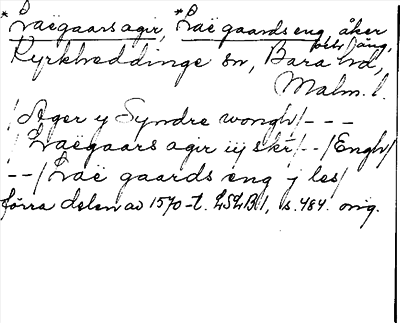 *Laëgaarsagir, *Laë gaards eng, åker
och äng,
Kyrkheddinge sn, Bara hd,
Malm. l.
/Ager y Syndre wongh/ - - -
/Laëgaars agir iij skr̄/ - - /Engh/
- - /Laë gaards eng j les/
förra delen av 1570-t. LSLB 1, s. 484. orig.